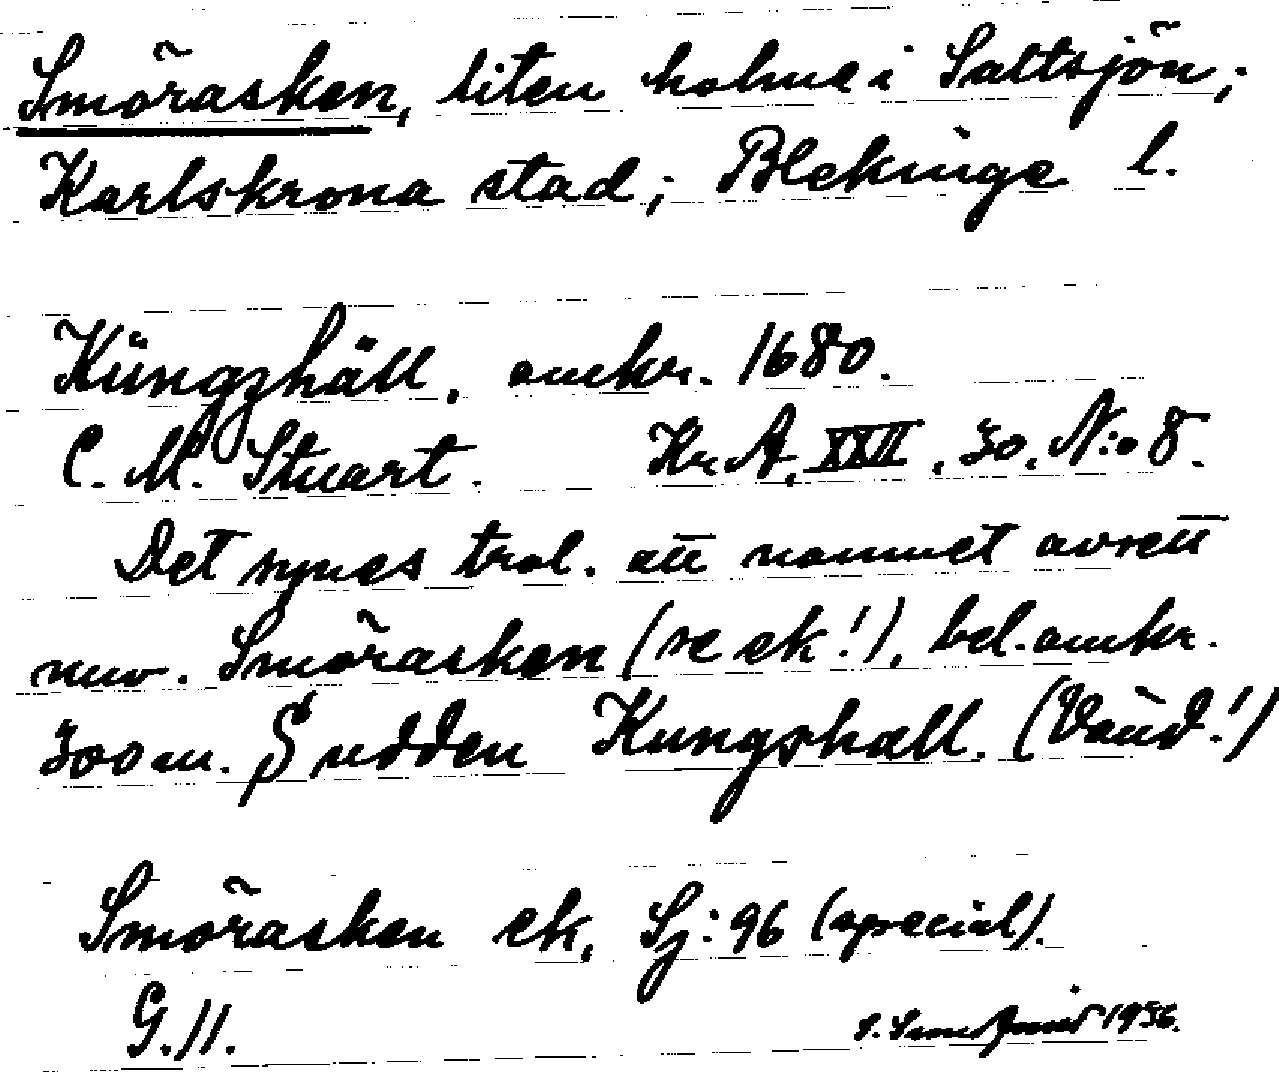 Smörasken, liten holme i Saltsjön;
Karlskrona stad; Blekinge l.
Küngzhäll, omkr. 1680.
C. M. Stuart. Kr A, XXII, 30, N:o 8.
Det synes trol. att namnet avsett
nuv. Smörasken (se ek!), bel. omkr.
300 m. S udden Kungshall. (Vänd!)
Smörasken ek, Sj: 96 (special).
G. 11. 1936.